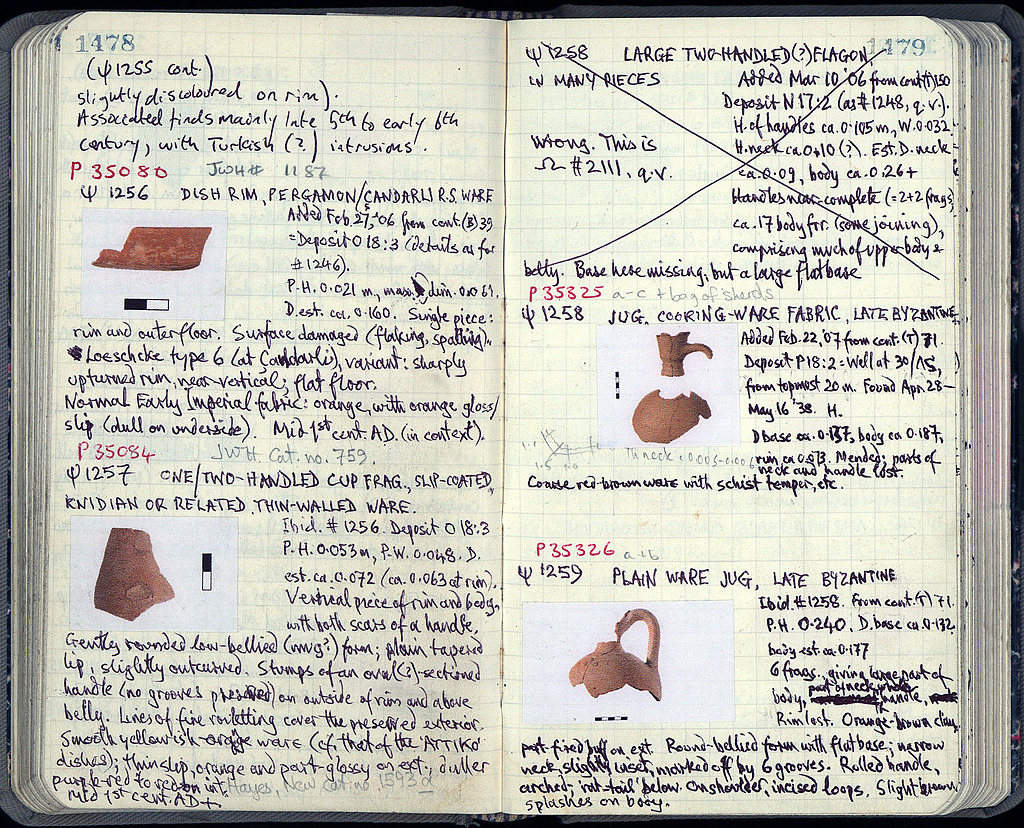 1478
(Ψ1255 cont.)
slightly discoloured on rim).
Associated finds mainly late 5th to early 6th
century, with Turkish (?) intrusions.
P 35080 JWH# 1187
Ψ 1256 DISH RIM, PERGAMON/CANDARLI R.S. WARE
Added Feb. 27, '06 from cont. (B) 39
= Deposit O 18:3 (details as for
#1246).
P.H. 0.021 m, max. dim. 0.069.
D. est. ca. 0.160. Single piece:
rim and outer floor. Surface damaged (flaking, spalling).
Loeschcke type 6 (at Çandarli), variant: sharply
upturned rim, near-vertical; flat floor.
Normal Early Imperial fabric: orange, with orange gloss/
slip (dull on underside). Mid 1st cent. AD. (in context).
P 35084 JWH Cat. no. 759.
Ψ 1257 ONE/TWO-HANDLED CUP FRAG., SLIP-COATED,
KNIDIAN OR RELATED THIN-WALLED WARE.
Ibid. #1256. Deposit O 18:3
P.H. 0.053 m, P.W. 0.048. D.
est. ca. 0.072 (ca. 0.063 at rim).
Vertical piece of rim and body,
with both scars of a handle.
Gently rounded low-bellied (mug?) form; plain tapered
lip, slightly outcurved. Stumps of an oval(?)-sectioned
handle (no grooves preserved) on outside of rim and above
belly. Lines of fine rouletting cover the preserved exterior.
Smooth yellowish-orange ware (cf. that of the 'ATTIKO'
dishes); thin slip, orange and part-glossy on ext., duller
purple-red to red on int. Hayes, New cat. no. 1593
mid 1st cent. AD+
1479
Ψ 1258 LARGE TWO-HANDLED(?) FLAGON,
IN MANY PIECES
Added Mar 10 '06 from cont. (T) 150
Deposit N 17:2 (as #1248, q.v.).
H. of handles ca. 0.105 m, W. 0.032
H. neck ca. 0.10 (?). Est. D. neck
ca. 0.09, body ca. 0.26+
Handles near-complete (=2+2 frags)
ca. 17 body frr. (some joining),
comprising much of upper body &
Wrong. This is
Ω #2111, q.v.
belly. Base here missing, but a large flat base
P 35325 a-c + bag of sherds
Ψ 1258 JUG, COOKING-WARE FABRIC, LATE BYZANTINE
Added Feb. 22, '07 from cont. (T) 71.
Deposit P 18:2 = Well at 30/ΛΣ,
from topmost 20 m. Found Apr. 28–
May 16 '38. H.
D base ca. 0.137, body ca. 0.187,
rim ca. 0.073. Mended; parts of
neck and handle lost.
Th neck
Coarse red-brown ware with schist temper, etc.
P 35326 a+b
Ψ 1259 PLAIN WARE JUG, LATE BYZANTINE
Ibid. #1258. From cont. (T) 71.
P.H. 0.240. D. base ca 0.132,
body est. ca 0.177
6 frags., giving large part of
body, part of neck, handle,
Rim lost. Orange-brown clay,
part-fired buff on ext. Round-bellied form with flat base; narrow
neck, slightly inset, marked off by 6 grooves. Rolled handle,
arched; rat-tail below. On shoulder, incised loops. Slight brown
splashes on body.